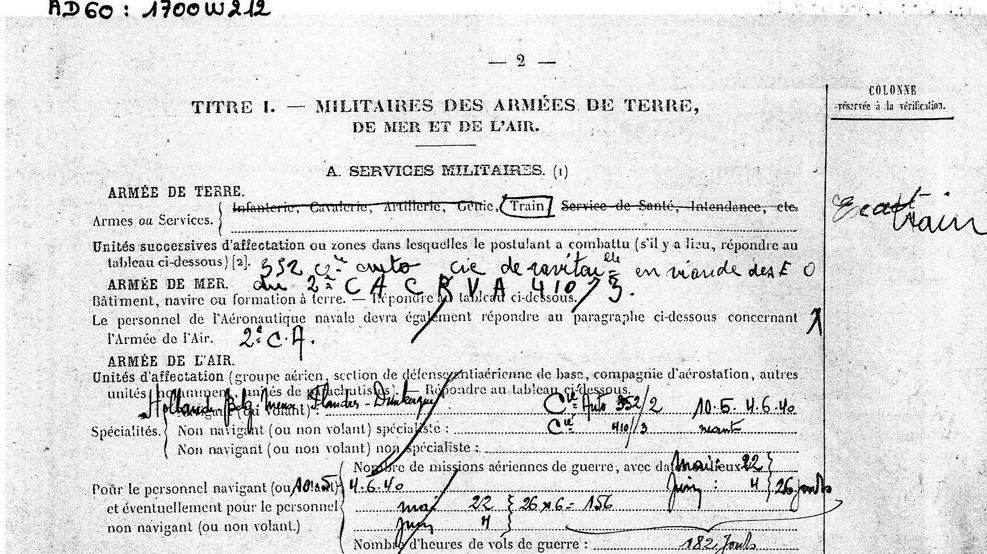 AD60 : 1700W212
— 2 —
COLONNE
réservée à la vérification.
TITRE I. — MILITAIRES DES ARMÉES DE TERRE,
DE MER ET DE L'AIR.
A. SERVICES MILITAIRES. (1)
ARMÉE DE TERRE.
Armes ou Services. { Infanterie, Cavalerie, Artillerie, Génie, Train, Service de Santé, Intendance, etc.
train
Unités successives d'affectation ou zones dans lesquelles le postulant a combattu (s'il y a lieu, répondre au
tableau ci-dessous) [2]. 352 cie auto cie de en viande des E O
ARMÉE DE MER. du 2e C A C R V A 410/3.
Bâtiment, navire ou formation à terre. — Répondre au tableau ci-dessous.
Le personnel de l'Aéronautique navale devra également répondre au paragraphe ci-dessous concernant
l'Armée de l'Air. 2e C.A.
ARMÉE DE L'AIR.
Unités d'affectation (groupe aérien, section de défense antiaérienne de base, compagnie d'aérostation, autres
unités, notamment unités de parachutistes). — Répondre au tableau ci-dessous.
Flandres - Dunkerque Cie Auto 352/2 10.5. 4.6.40
Spécialités. { Navigant (ou volant)
Non navigant (ou non volant) spécialiste : Cie 410/3 néant
Non navigant (ou non volant) non spécialiste :
Nombre de missions aériennes de guerre, avec date mai : 22
Pour le personnel navigant (ou volant) 10.5 4.6.40 Juin : 4 } 26 jours
et éventuellement pour le personnel mai 22 } 26 x 6 = 156
non navigant (ou non volant.) Juin 4
Nombre d'heures de vols de guerre : 182 jours